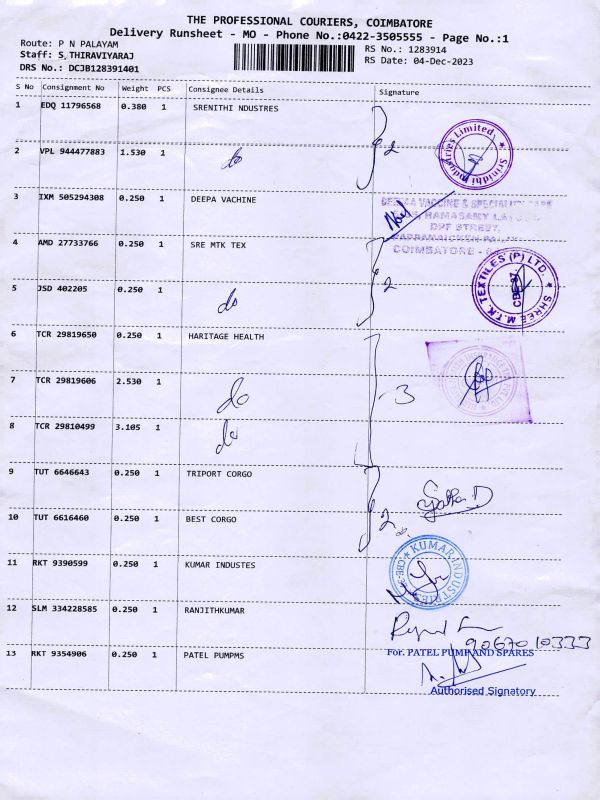 THE PROFESSIONAL COURIERS, COIMBATORE
Delivery Runsheet - MO - Phone No.:0422-3505555 - Page No.:1
Route: P N PALAYAM
Staff: S,THIRAVIYARAJ
DRS No.: DCJB128391401
RS No.: 1283914
RS Date: 04-Dec-2023
S No Consignment No Weight PCS Consignee Details Signature
1 EDQ 11796568 0.380 1 SRENITHI NDUSTRES
2
Srinidhi Industries Limited
2 VPL 944477883 1.530 1 do
3 IXM 505294308 0.250 1 DEEPA VACHINE
VACCINE & SPECIALITY CARE
RAMASAMY LAYOUT
DPF STREET,
COIMBATORE
4 AMD 27733766 0.250 1 SRE MTK TEX
2
SHREE M.T.K. TEXTILES (P) LTD.
CBE-37
5 JSD 402205 0.250 1 do
6 TCR 29819650 0.250 1 HARITAGE HEALTH
3
7 TCR 29819606 2.530 1 do
8 TCR 29810499 3.105 1 do
9 TUT 6646643 0.250 1 TRIPORT CORGO
2
10 TUT 6616460 0.250 1 BEST CORGO
11 RKT 9390599 0.250 1 KUMAR INDUSTES
KUMAR INDUSTRIES
12 SLM 334228585 0.250 1 RANJITHKUMAR
9067010333
13 RKT 9354906 0.250 1 PATEL PUMPMS
For. PATEL PUMP AND SPARES
Authorised Signatory